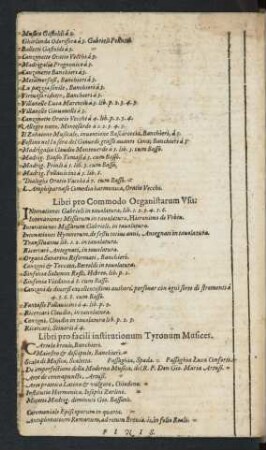 Musica Gastoldi à 5.
Ghirlanda Odorifera à 3. Gabrieli Pultiti
Balletti Gastoldi à 5.
Canzonette Oratio Vecchi à 3.
Madrigalia Prognonicæ à 5
Canzonette Banchieri à 3.
Metamorfosi, Banchieri à 3.
La pazzia senile, Banchieri à 3.
Virtuoso ridotto, Banchieri à 3.
Villanelle Luca Marenzio à 3. lib. p. 2. 3. 4. 5.
Villanelle Giovanelli à 3.
Canzonette Oratio Vecchi à 4. lib. p. 2. 3. 4.
Allegro tuono, Monteßardo à 1. 2. 3. 4. 5.
Il Zabaione Musicale, inventione Boscareccia, Banchieri, à 5.
Festino nel la sera del Giovedi grasso avanti Cena; Banchieri à 5
Madrigalia Claudio Monteverde à 5. lib. 5. cum Basso.
Madrig. Basile Tomaso à 5. cum Basso.
Madrig. Priuli à 5. cum Basso.
Madrig. Pallavicini à 5. lib. 8.
Dialoghi Oratio Vecchi à 7. cum Basso.
L'Amphiparnaso Comedia harmonica, Oratio Vecchi.
Libri pro Commodo Organistarum Vsui:
INtonationes Gabrieli in tavulatura, lib. 1. 2. 3. 4. 5. 6.
Intonationes Missarum in tavulatura, Hieronimo de Vrbin.
Intonationes Missarum Gabrieli, in tavulatura.
Intonationes Hymnorum, de festis totius anni, Antegnati in tavulatura.
Transilvanus lib. 1. 2. in tavulatura.
Ricercari, Antegnati, in tavulatura.
Organo Suonarino Reformati, Banchieri.
Canzoni è Toccata, Bertoldi in tavulatura.
Sinfonia Salamon Rossi, Hebreo, lib. p. 2.
Sinfonia Viadana à 8. cum Basso.
Canzoni de diversi excellentissimi authori, per sonar con ogni sorte de stromenti à
4. 5. 6. 8. cum Basso.
Fantasie Pallavicini à 4. lib. p. 2.
Ricercari Claudio, in tavulatura.
Canzoni, Claudio in tavulatura lib. p. 2. 3.
Ricercari, Stivorii à 4.
Libri pro facili institutionum Tyronum Musices.
ARtuola brevis, Banchieri.
Maiestro & discipulo, Banchieri.
Scala di Musica, Scaletta. Passaggios, Spada. Passaggios Luca Conforti.
De imperfettione della Moderna Musica, de i R. P. Don Gio. Maria Artusi.
Arte de contrapunctis, Artusi.
Arte pratica Latine & vulgare, Claudina.
Institutio Harmonica, Ioseph. Zerlini.
Mantis Madrig. diminuiti Gio. Bassani.
Cæremoniale Episcoporum in quarto.
FINIS